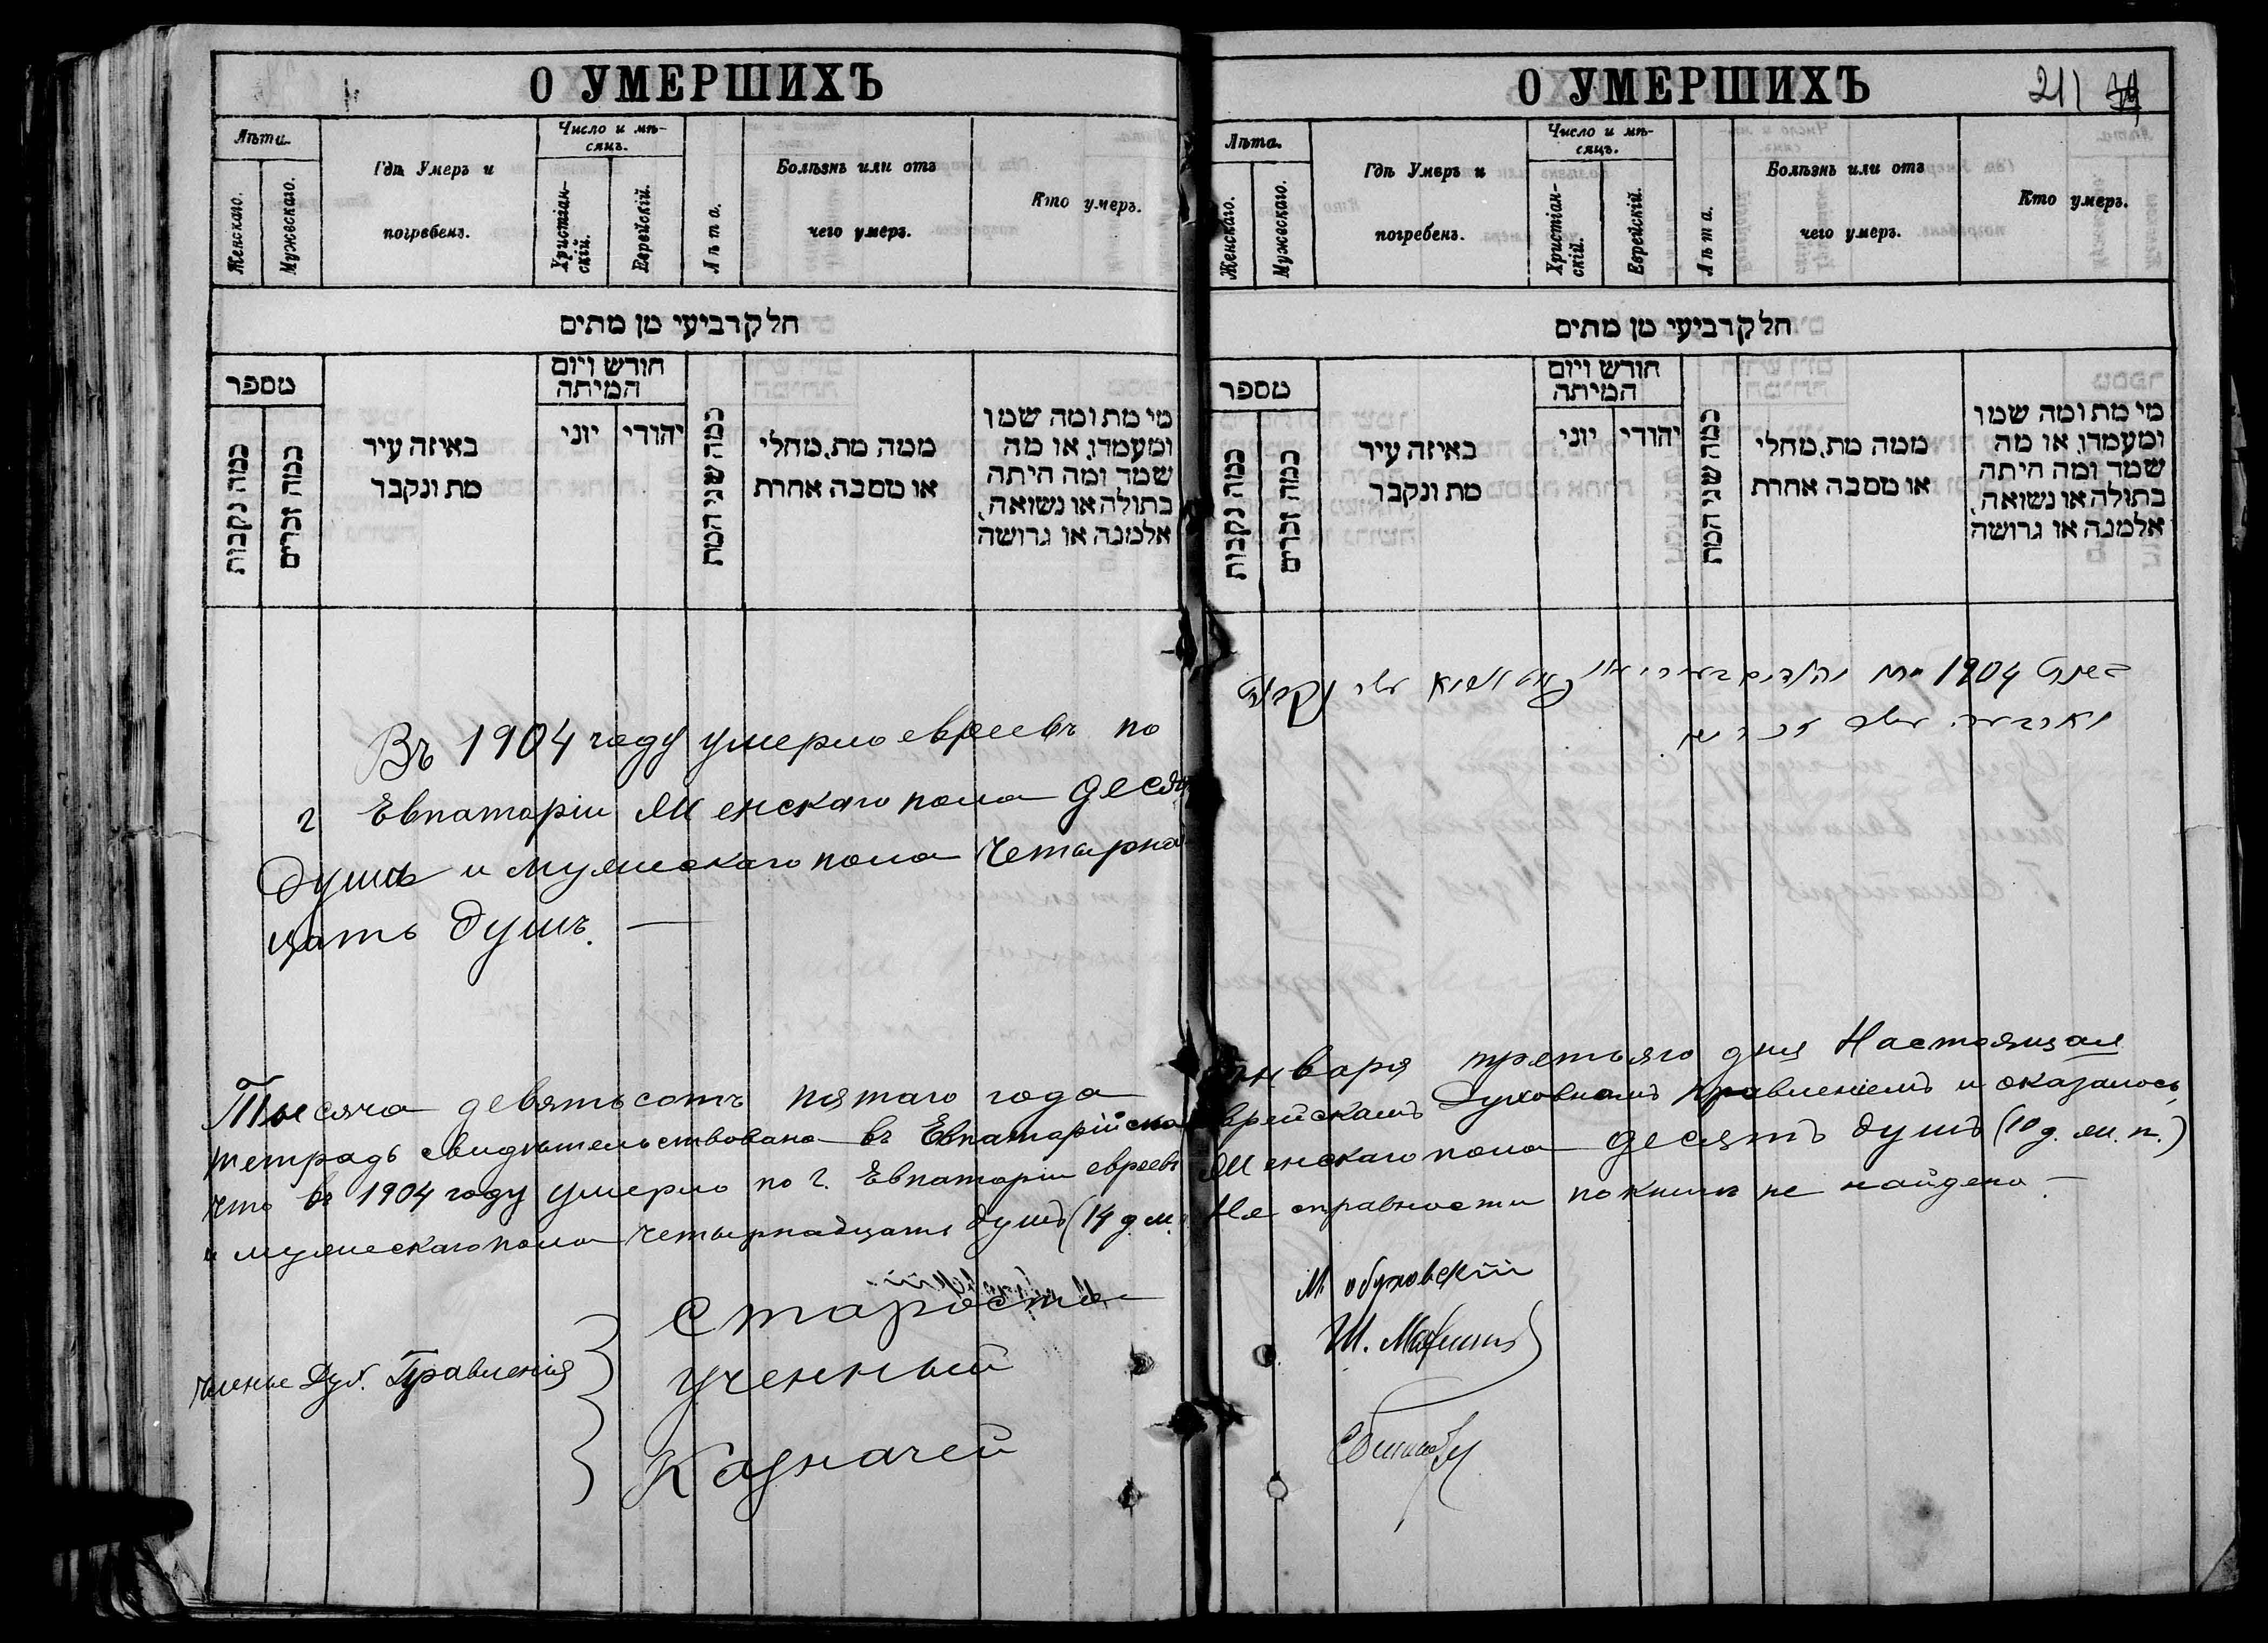 О УМЕРШИХЪ
Лѣта.
Женскаго.
Мужескаго.
Гдѣ Умеръ и
погребенъ.
Число и мѣ-
сяцъ.
Христіан-
скій.
Еврейскій.
Лѣта.
Болѣзнь или отъ
чего умеръ.
Кто умеръ.
חלק רביעי מן מתים
מספר
כמה נקבות
כמה זכרים
באיזה עיר
מת ונקבר
חודש ויום
המיתה
יוני
יהודי
כמה שני המת
ממה מת, מחלי
או מסבה אחרת
מי מת ומה שמו
ומעמדו, או מה
שמה ומה היתה
בתולה או נשואה,
אלמנה או גרושה
Въ 1904 году умерло евреевъ по
г Евпаторіи Женскаго пола десять
душъ и мужескаго пола Четырна
цать душъ. —
О УМЕРШИХЪ
211
Лѣта.
Женскаго.
Мужескаго.
Гдѣ Умеръ и
погребенъ.
Число и мѣ-
сяцъ.
Христіан-
скій.
Еврейскій.
Лѣта.
Болѣзнь или отъ
чего умеръ.
Кто умеръ.
חלק רביעי מן מתים
מספר
כמה נקבות
כמה זכרים
באיזה עיר
מת ונקבר
חודש ויום
המיתה
יוני
יהודי
כמה שני המת
ממה מת, מחלי
או מסבה אחרת
מי מת ומה שמו
ומעמדו, או מה
שמה ומה היתה
בתולה או נשואה,
אלמנה או גרושה
בשנת 1904 מתו
Тысяча девятьсотъ пятаго года Января третьяго дня Настоящая
тетрадь свидѣтельствована въ Евпаторійскомъ Еврейскомъ Духовномъ Правленіемъ и оказалось,
что въ 1904 году умерло по г. Евпаторіи евреевъ Женскаго пола десять душъ (10 д. ж. п.)
и мужескаго пола четырнадцать душъ (14 д. м. Не справности по книгѣ не найдено. —
Члены Дух. Правленія
Староста М. Обуховскій
Ученный Ш.
Казначей